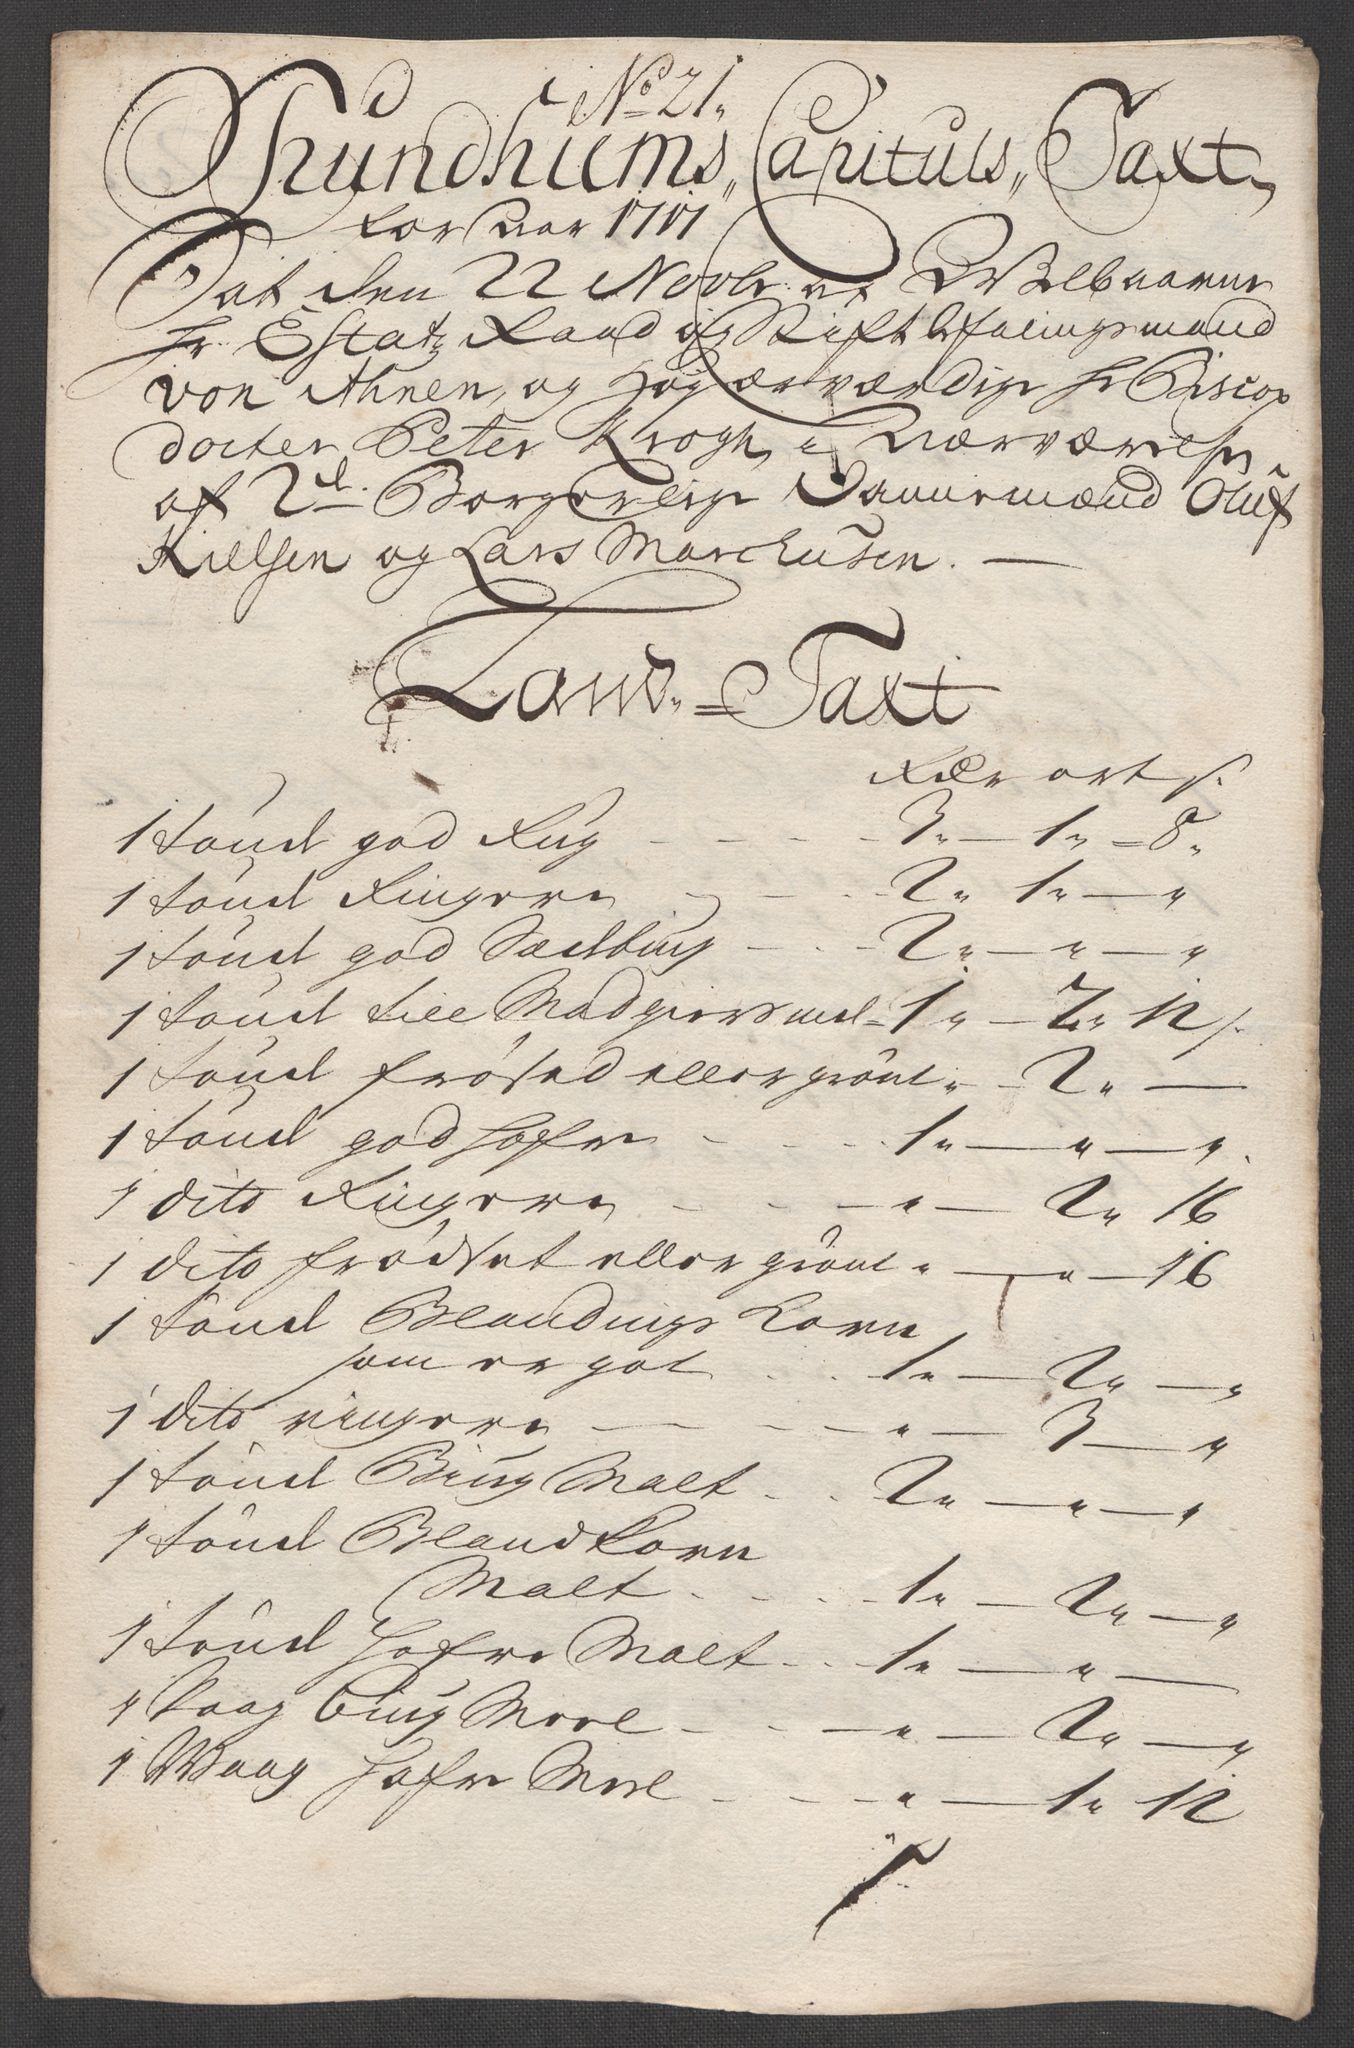 No 21.
Trundhiems Capituls Taxt
for Aar 1717
Sat den 22 Novbr: af Welbaarne
Hr. Estatz Raad og Stiftbefalingsmand
von Ahnen, og Høyærværdige Hr Biscop
docter Peter Krogh, i Nærværelse
af 2de Borgerlige Dannemænd Oluf
Kielsen og Lars Marchusen. —
Land- = Taxt
Rdr ort s.
1 tønd god Rug - - - 3" — 1" = 8"
1 tønd Ringere - - 2" 1" — "
1 tønd god Sædbiug - - 2" — " — "
1 tønd till Madgiersmel = 1" — 2" 12 s.
1 tønd frøsed eller grønt " — 2" —
1 tønd god Hafre - - - 1" — " — "
1 dito Ringere - - - " — 2" 16
1 dito frødset eller grønt " — " — 16
1 tønd Blandings Korn
som er got . . 1" — 2" — "
1 dito ringere — - - " — 3 — "
1 tønd Biug Malt - . 2" — " — "
1 tønd Blandkorn
Malt - - - 1" — 2" — "
1 tønd Hafre Malt - . 1" — " —
1 Vaag biug Meel - - — " — 2" — "
1 Waag Hafre Meel - - - " — 1" 12